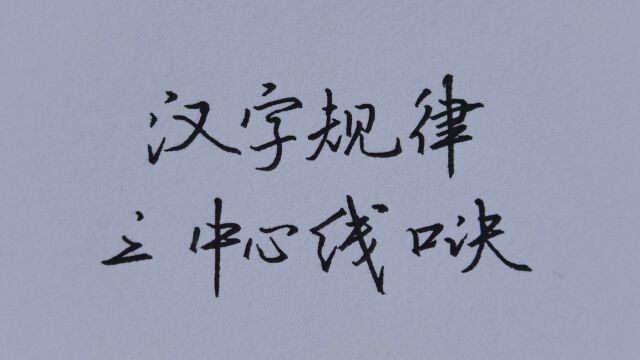 汉字规律
之中心线口诀